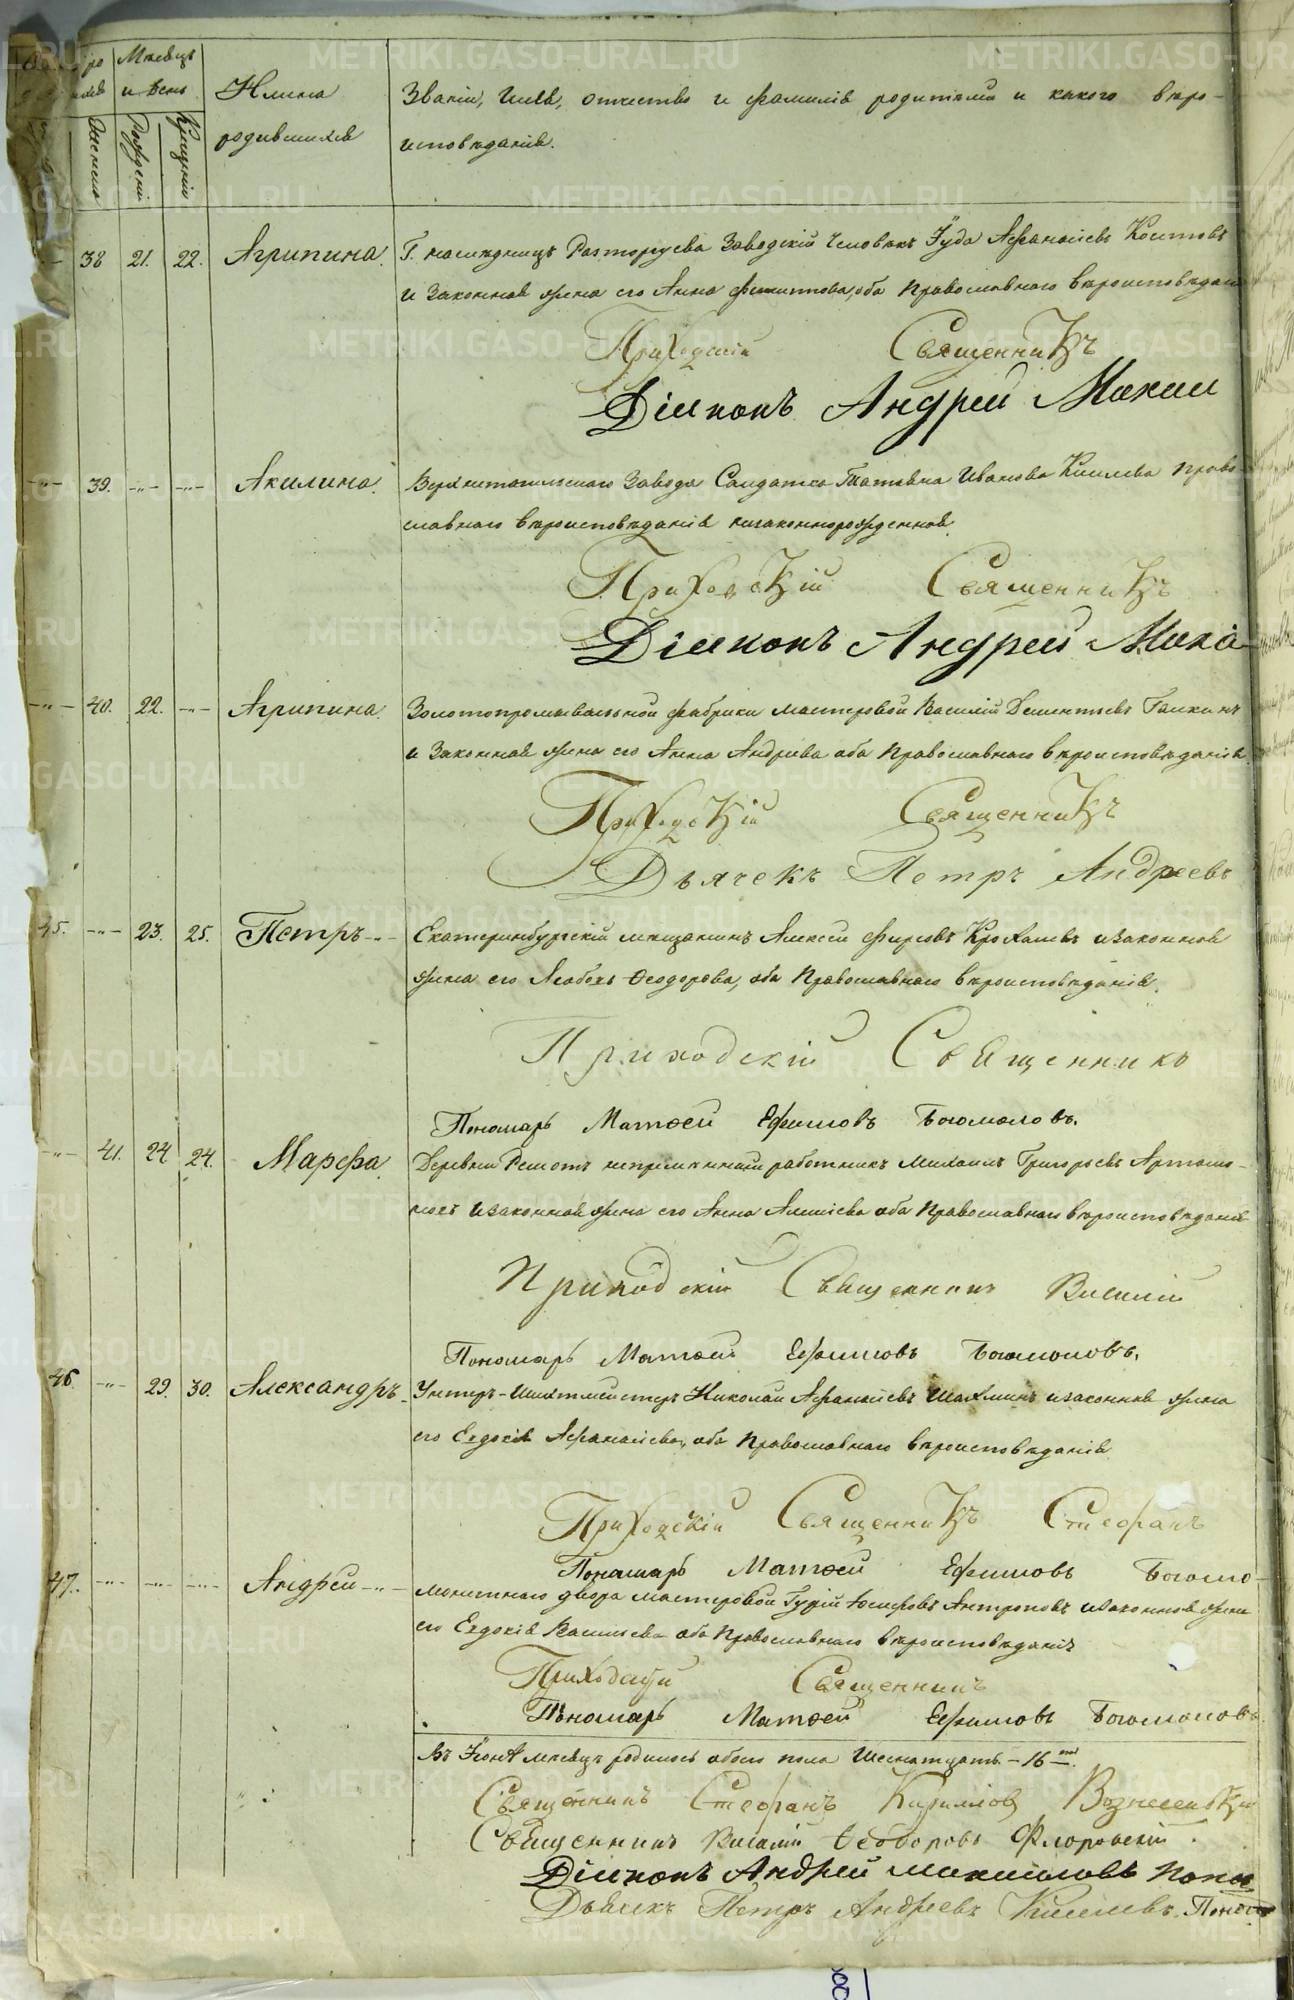 Мѣсяцъ
и день
Женска
Рожденія
Крещенія
Имена
родившихся
Званіе, имя, отчество и фамилія родителей и какого вѣро-
исповѣданія.
38 21. 22. Агрипина. Г. наслѣдницъ Расторгуева Заводскій человѣкъ Іуда Афанасіевъ
и законная жена его Анна Филиппова, оба Православнаго вѣроисповѣдан
Приходскій Священникъ
Діаконъ Андрей Михаи
39. Акилина. Верхнетагильскаго Завода Солдатка Татьяна Иванова Киселева Право
славнаго вѣроисповѣданія незаконнорожденная.
Приходскій Священникъ
Діаконъ Андрей Миха
40. 22. Агрипина. Золотопромывальной фабрики мастеровой Василій Дементьевъ Галкинъ
и законная жена его Анна Андреева оба Православнаго вѣроисповѣданія.
Приходскій Священникъ
Дьячекъ Петръ Андреевъ
45. 23. 25. Петръ Екатеринбургскій мѣщанинъ Алексѣй Фирсовъ Крохалевъ и законная
жена его Любовь Ѳеодорова, оба Православнаго вѣроисповѣданія.
Приходскій Священникъ
Пономарь Матѳей Ефимовъ Богомоловъ.
41. 24 24. Марѳа. Деревни Решотъ непремѣнный работникъ Михаилъ Григорьевъ
и законная жена его Анна Алексіева оба Православнаго вѣроисповѣданія
Приходскій Священникъ Василій
Пономарь Матѳей Ефимовъ Богомоловъ.
46 29. 30. Александръ Унтеръ-Шихтмейстеръ Николай Афанасіевъ и законная жена
его Евдокія Афанасіева, оба Православнаго вѣроисповѣданія.
Приходскій Священникъ Стефанъ
Пономарь Матѳей Ефимовъ Богомо
47. Андрей Монетнаго двора мастеровой Гурій Іосифовъ Антроповъ и законная жена
его Евдокія Васильева оба Православнаго вѣроисповѣданія
Приходскій Священникъ
Пономарь Матѳей Ефимовъ Богомоловъ.
Въ Іюнѣ мѣсяцѣ родилось обоего пола Шеснатцать - 16
Священникъ Стефанъ Кирилловъ Вознесенскій
Священникъ Василій Ѳеодоровъ Флоровскій.
Діаконъ Андрей Михайловъ Попов
Дьячекъ Петръ Андреевъ Киселевъ.
METRIKI.GASO-URAL.RU